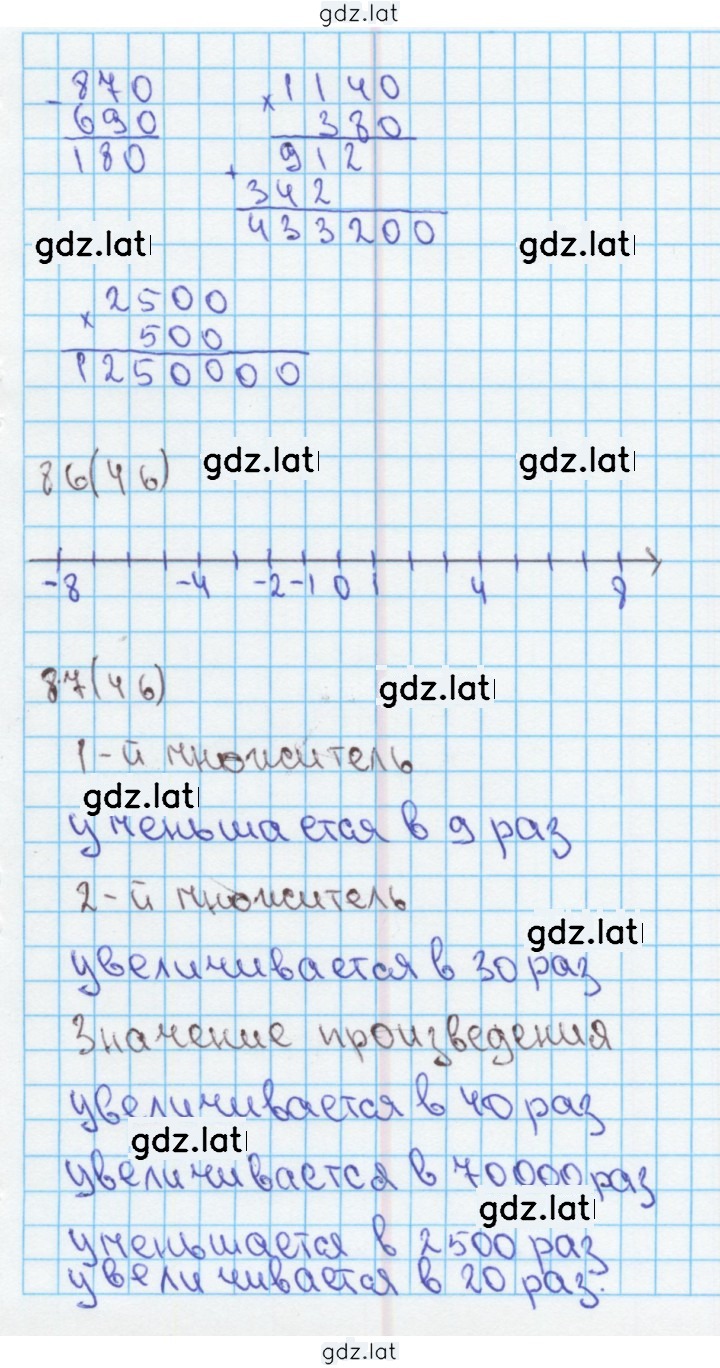 gdz.lat
- 870
690
180
× 1140
380
912
+ 342
433200
gdz.lat
gdz.lat
× 2500
500
1250000
86(46)
gdz.lat
gdz.lat
-8 -4 -2 -1 0 1 4 8
87(46)
gdz.lat
1-й множитель
gdz.lat
уменьшается в 9 раз
2-й множитель
gdz.lat
увеличивается в 30 раз
Значение произведения
увеличивается в 40 раз
gdz.lat
увеличивается в 70000 раз
gdz.lat
уменьшается в 2500 раз
увеличивается в 20 раз.
gdz.lat